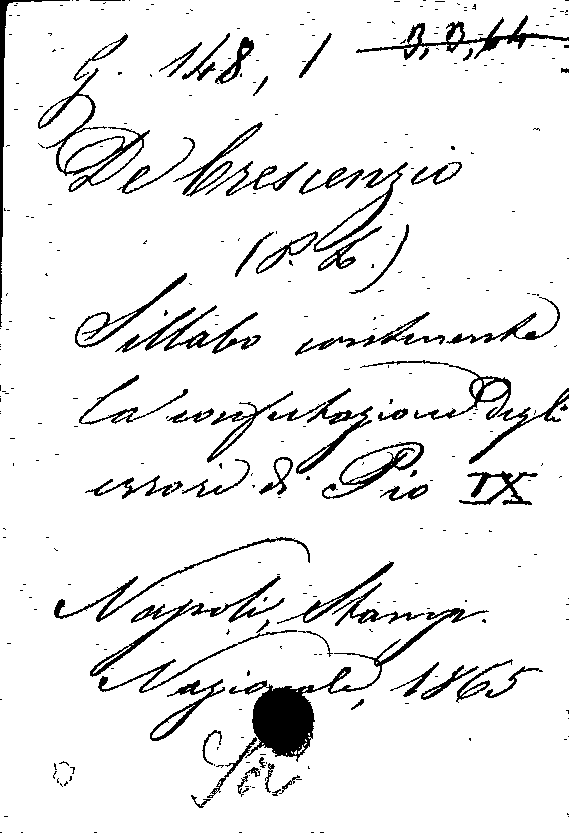 G. 148, 1 3,3,44
De Crescenzio
(P. L.)
Sillabo contenente
la confutazione degli
errori di Pio IX
Napoli, Stamp.
Nazionale, 1865